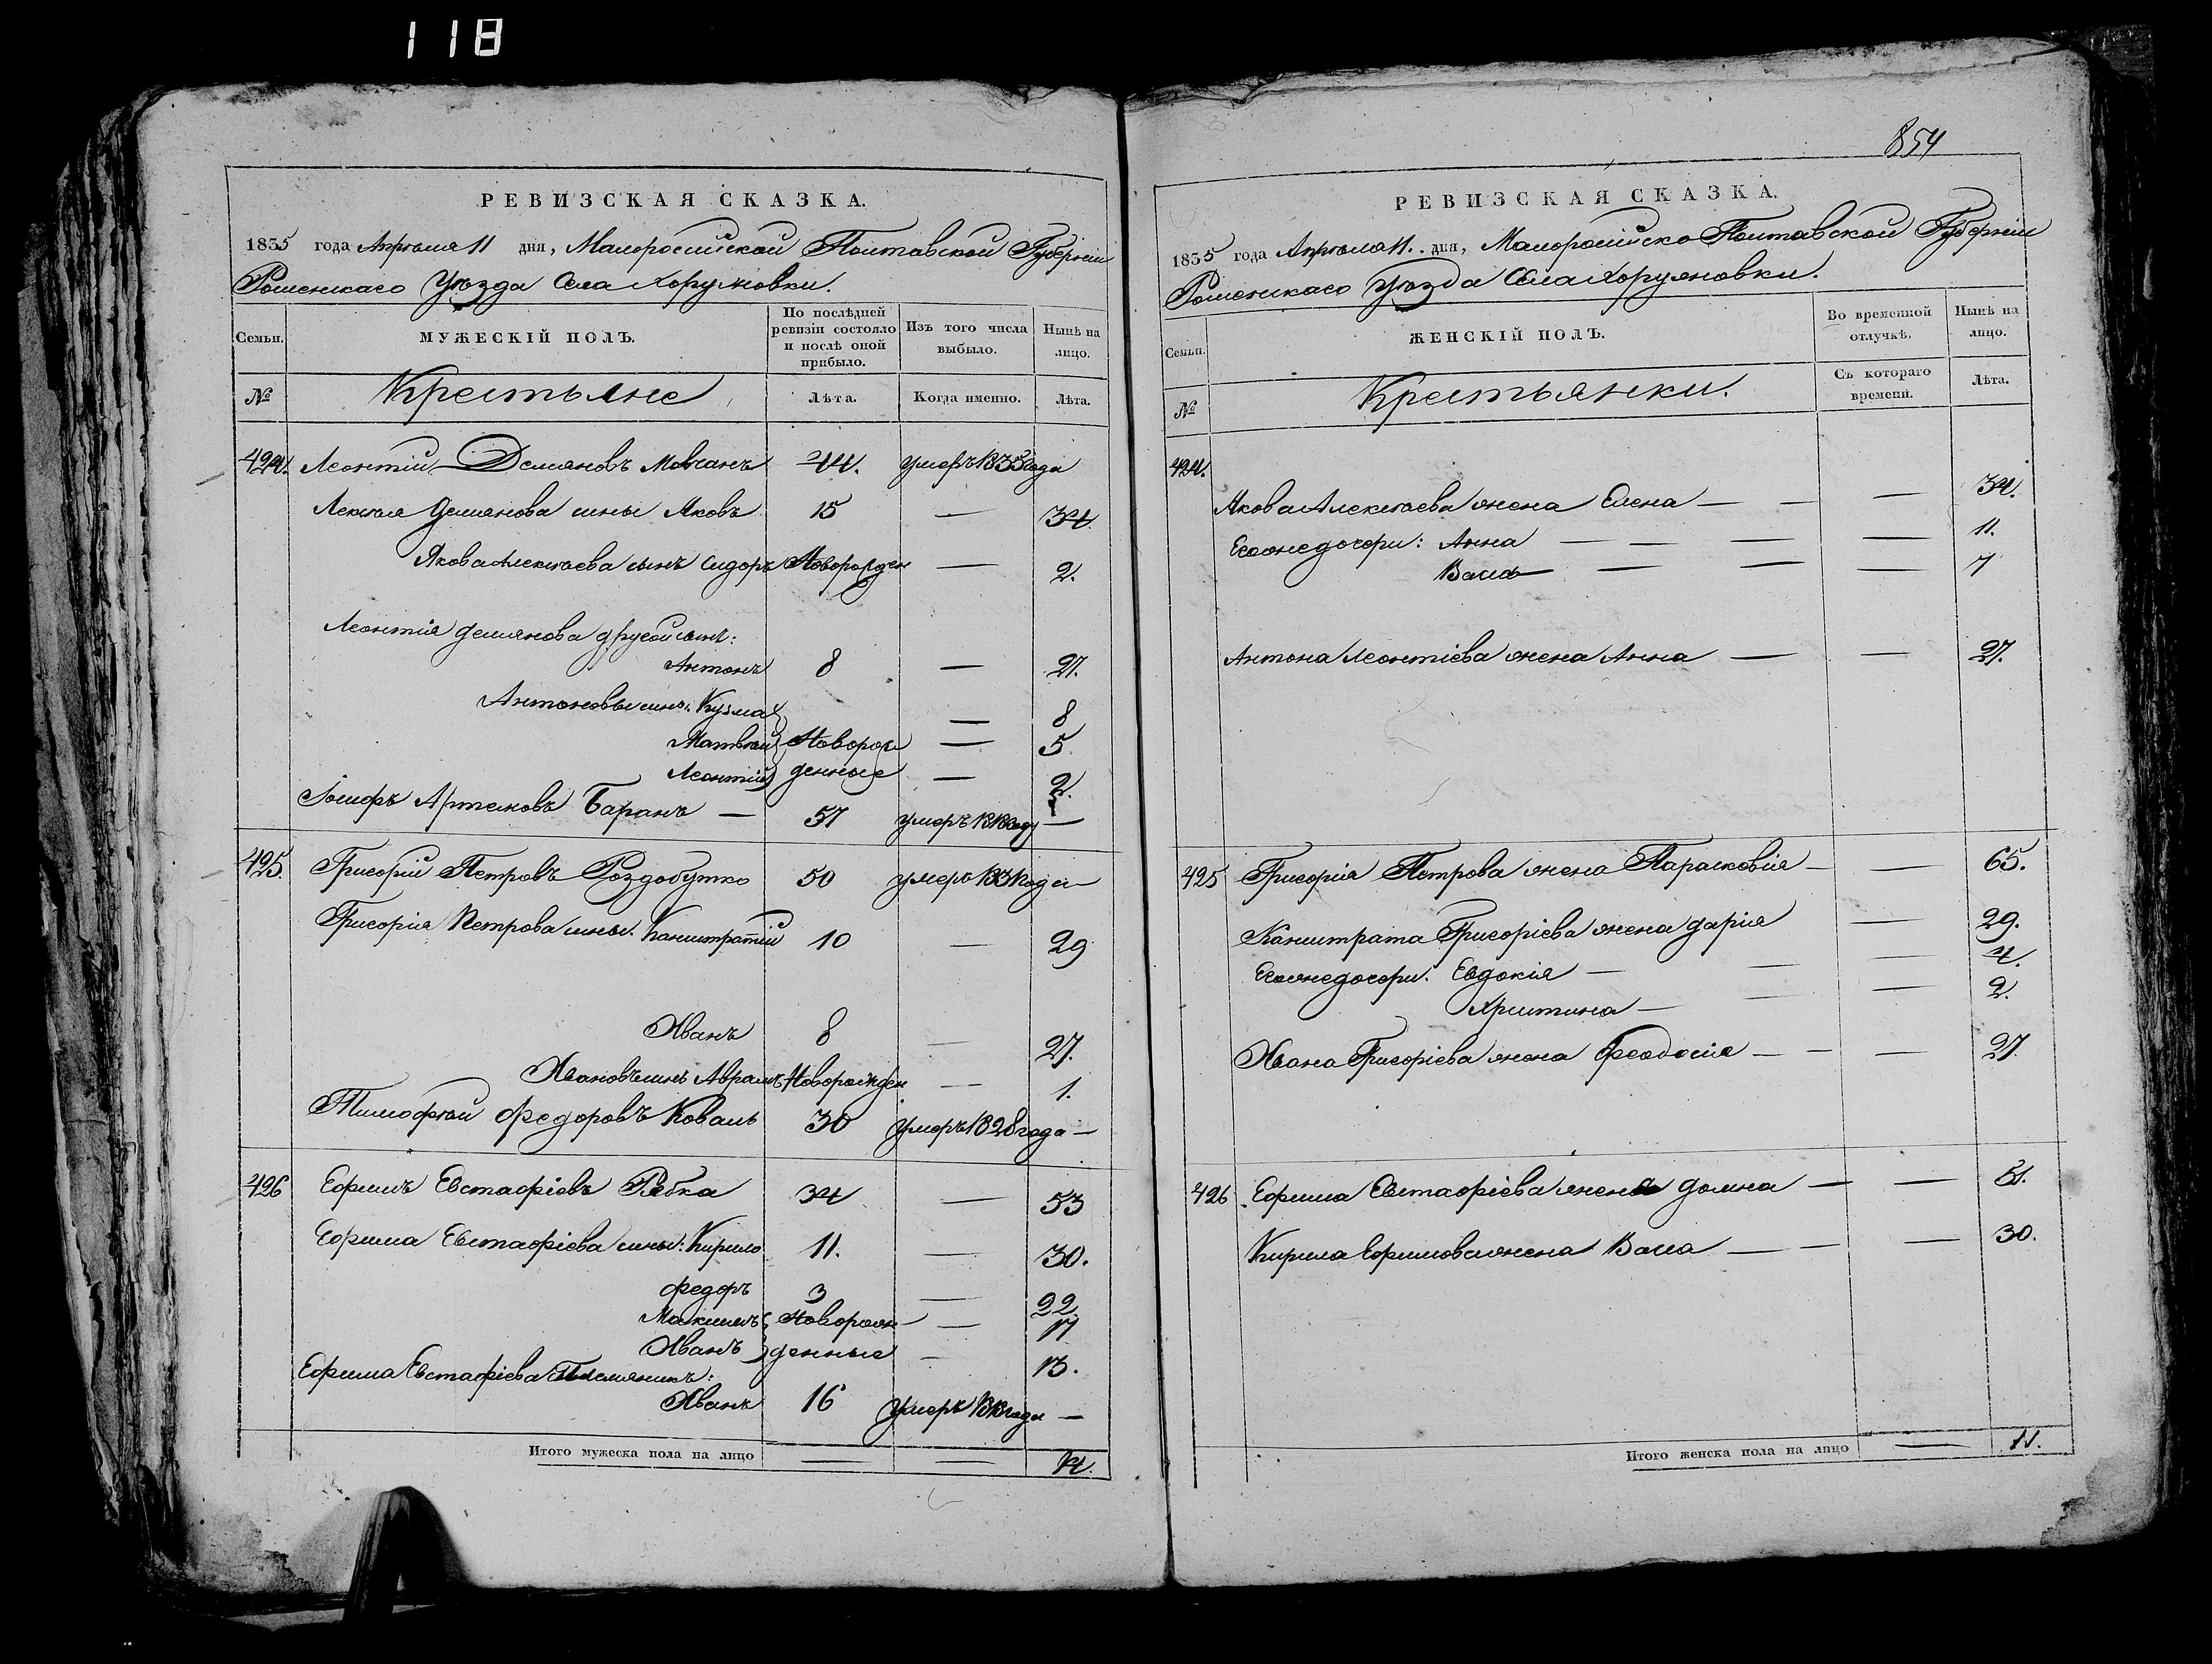 118
РЕВИЗСКАЯ СКАЗКА.
1835 года Апрѣля 11 дня, Малоросiйской Полтавской Губернiи
Роменскаго Уѣзда Села Хоружовки.
Семьи.
МУЖЕСКІЙ ПОЛЪ.
По послѣдней ревизіи состояло и послѣ оной прибыло.
Изъ того числа выбыло.
Нынѣ на лицо.
№
Крестьяне
Лѣта.
Когда именно.
Лѣта.
424. Леонтій Демяновъ Мовчанъ 44. умеръ 1835 года
Алексѣя Демянова сины Яковъ 15 — 34.
Якова Алексѣева сынъ Сидоръ Новорожден — 2.
Леонтія Демянова другой сынъ:
Антонъ 8 — 27.
Антоновы сины: Кузма — 8
Матвѣй Новорож — 5
Леонтій денные — 2.
Іосифъ Артемовъ Баранъ — 57 умеръ 1818 году —
425. Григорій Петровъ Роздобутко 50 умеръ 1831 года
Григорія Петрова сины: Калистратій 10 — 29
Иванъ 8 — 27.
Ивановъ синъ Аврамъ Новорожден — 1.
Тимофѣй Федоровъ Коваль 30 умеръ 1828 года —
426 Ефимъ Евстафіевъ Рябка 34 — 53
Ефима Евстафіева сины: Кирило 11. — 30.
Федоръ 3 — 22.
Максимъ Новорож — 17
Иванъ денные — 13.
Ефима Евстафіева Племяникъ:
Иванъ 16 умеръ 1818 года —
Итого мужеска пола на лицо — — 14.
854
РЕВИЗСКАЯ СКАЗКА.
1835 года Апрѣля 11. дня, Малоросійско Полтавской Губерніи
Роменскаго Уѣзда Села Хоружовки.
Семьи.
ЖЕНСКІЙ ПОЛЪ.
Во временной отлучкѣ.
Нынѣ на лицо.
№
Крестьянки.
Съ котораго времени.
Лѣта.
424.
Якова Алексѣева жена Елена — — — 34.
Его же дочери: Анна — — — — 11.
Васса — — — — 7
Антона Леонтіева жена Анна — — 27.
425 Григорія Петрова жена Парасковія — — 65.
Калистрата Григоріева жена Дарія — 29.
Его же дочери: Евдокія — — — 4.
Христина — — — 2.
Ивана Григоріева жена Феодосія — — — 27.
426. Ефима Евстафіева жена Домна — — 51.
Кирила Ефимова жена Васса — — — 30.
Итого женска пола на лицо — 11.